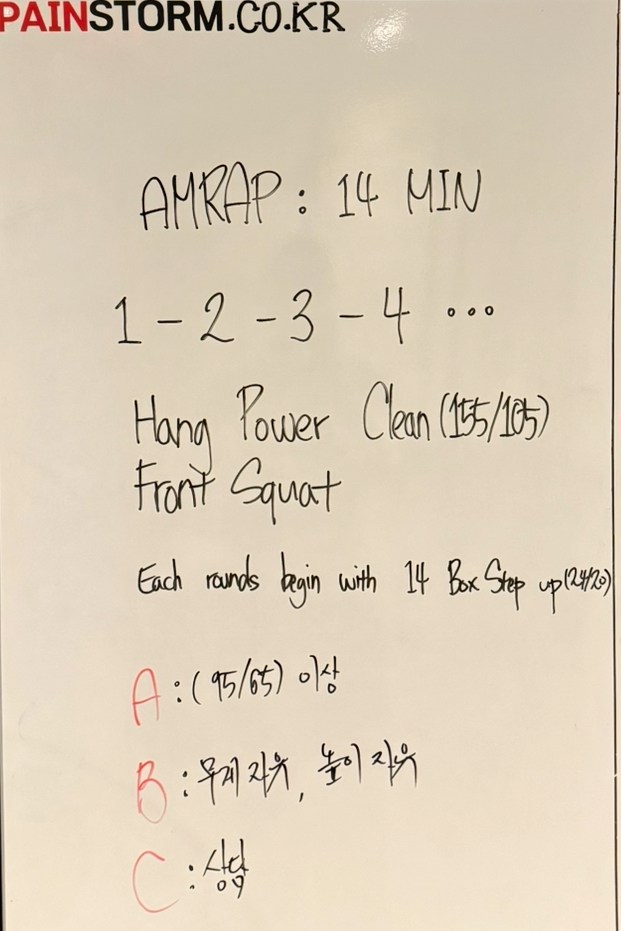 PAINSTORM.CO.KR
AMRAP : 14 MIN
1 - 2 - 3 - 4 ...
Hang Power Clean (155/105)
Front Squat
Each rounds begin with 14 Box Step up (24/20)
A : (95/65) 이상
B : 무게 자유, 높이 자유
C : 상담